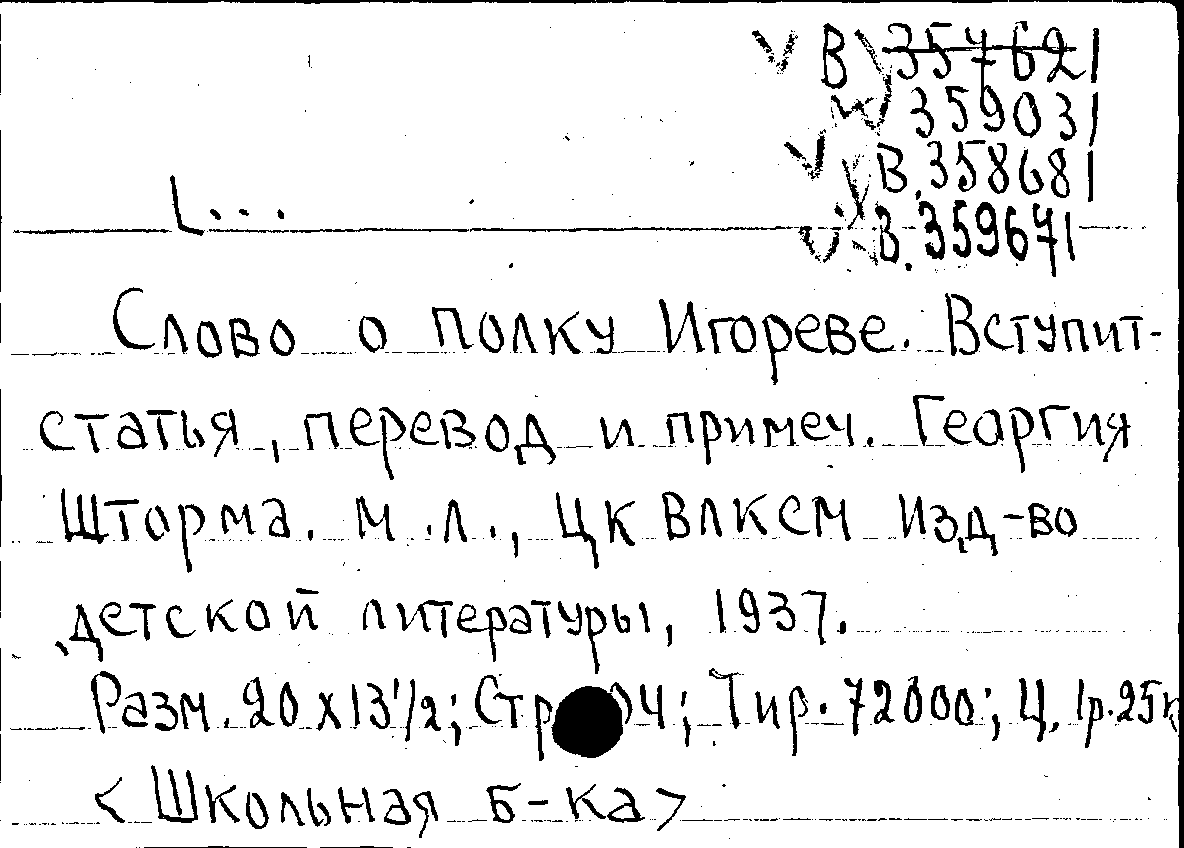 В 357621
359031
В.358681
В.359671
L...
Слово о полку Игореве. Вступит-
статья, перевод и примеч. Георгия
Шторма. М.Л., ЦК ВЛКСМ Изд-во
детской литературы, 1937.
Разм. 20 х 13 1/2; Стр 04; Тир. 72000; Ц. 1р.25к
<Школьная б-ка>